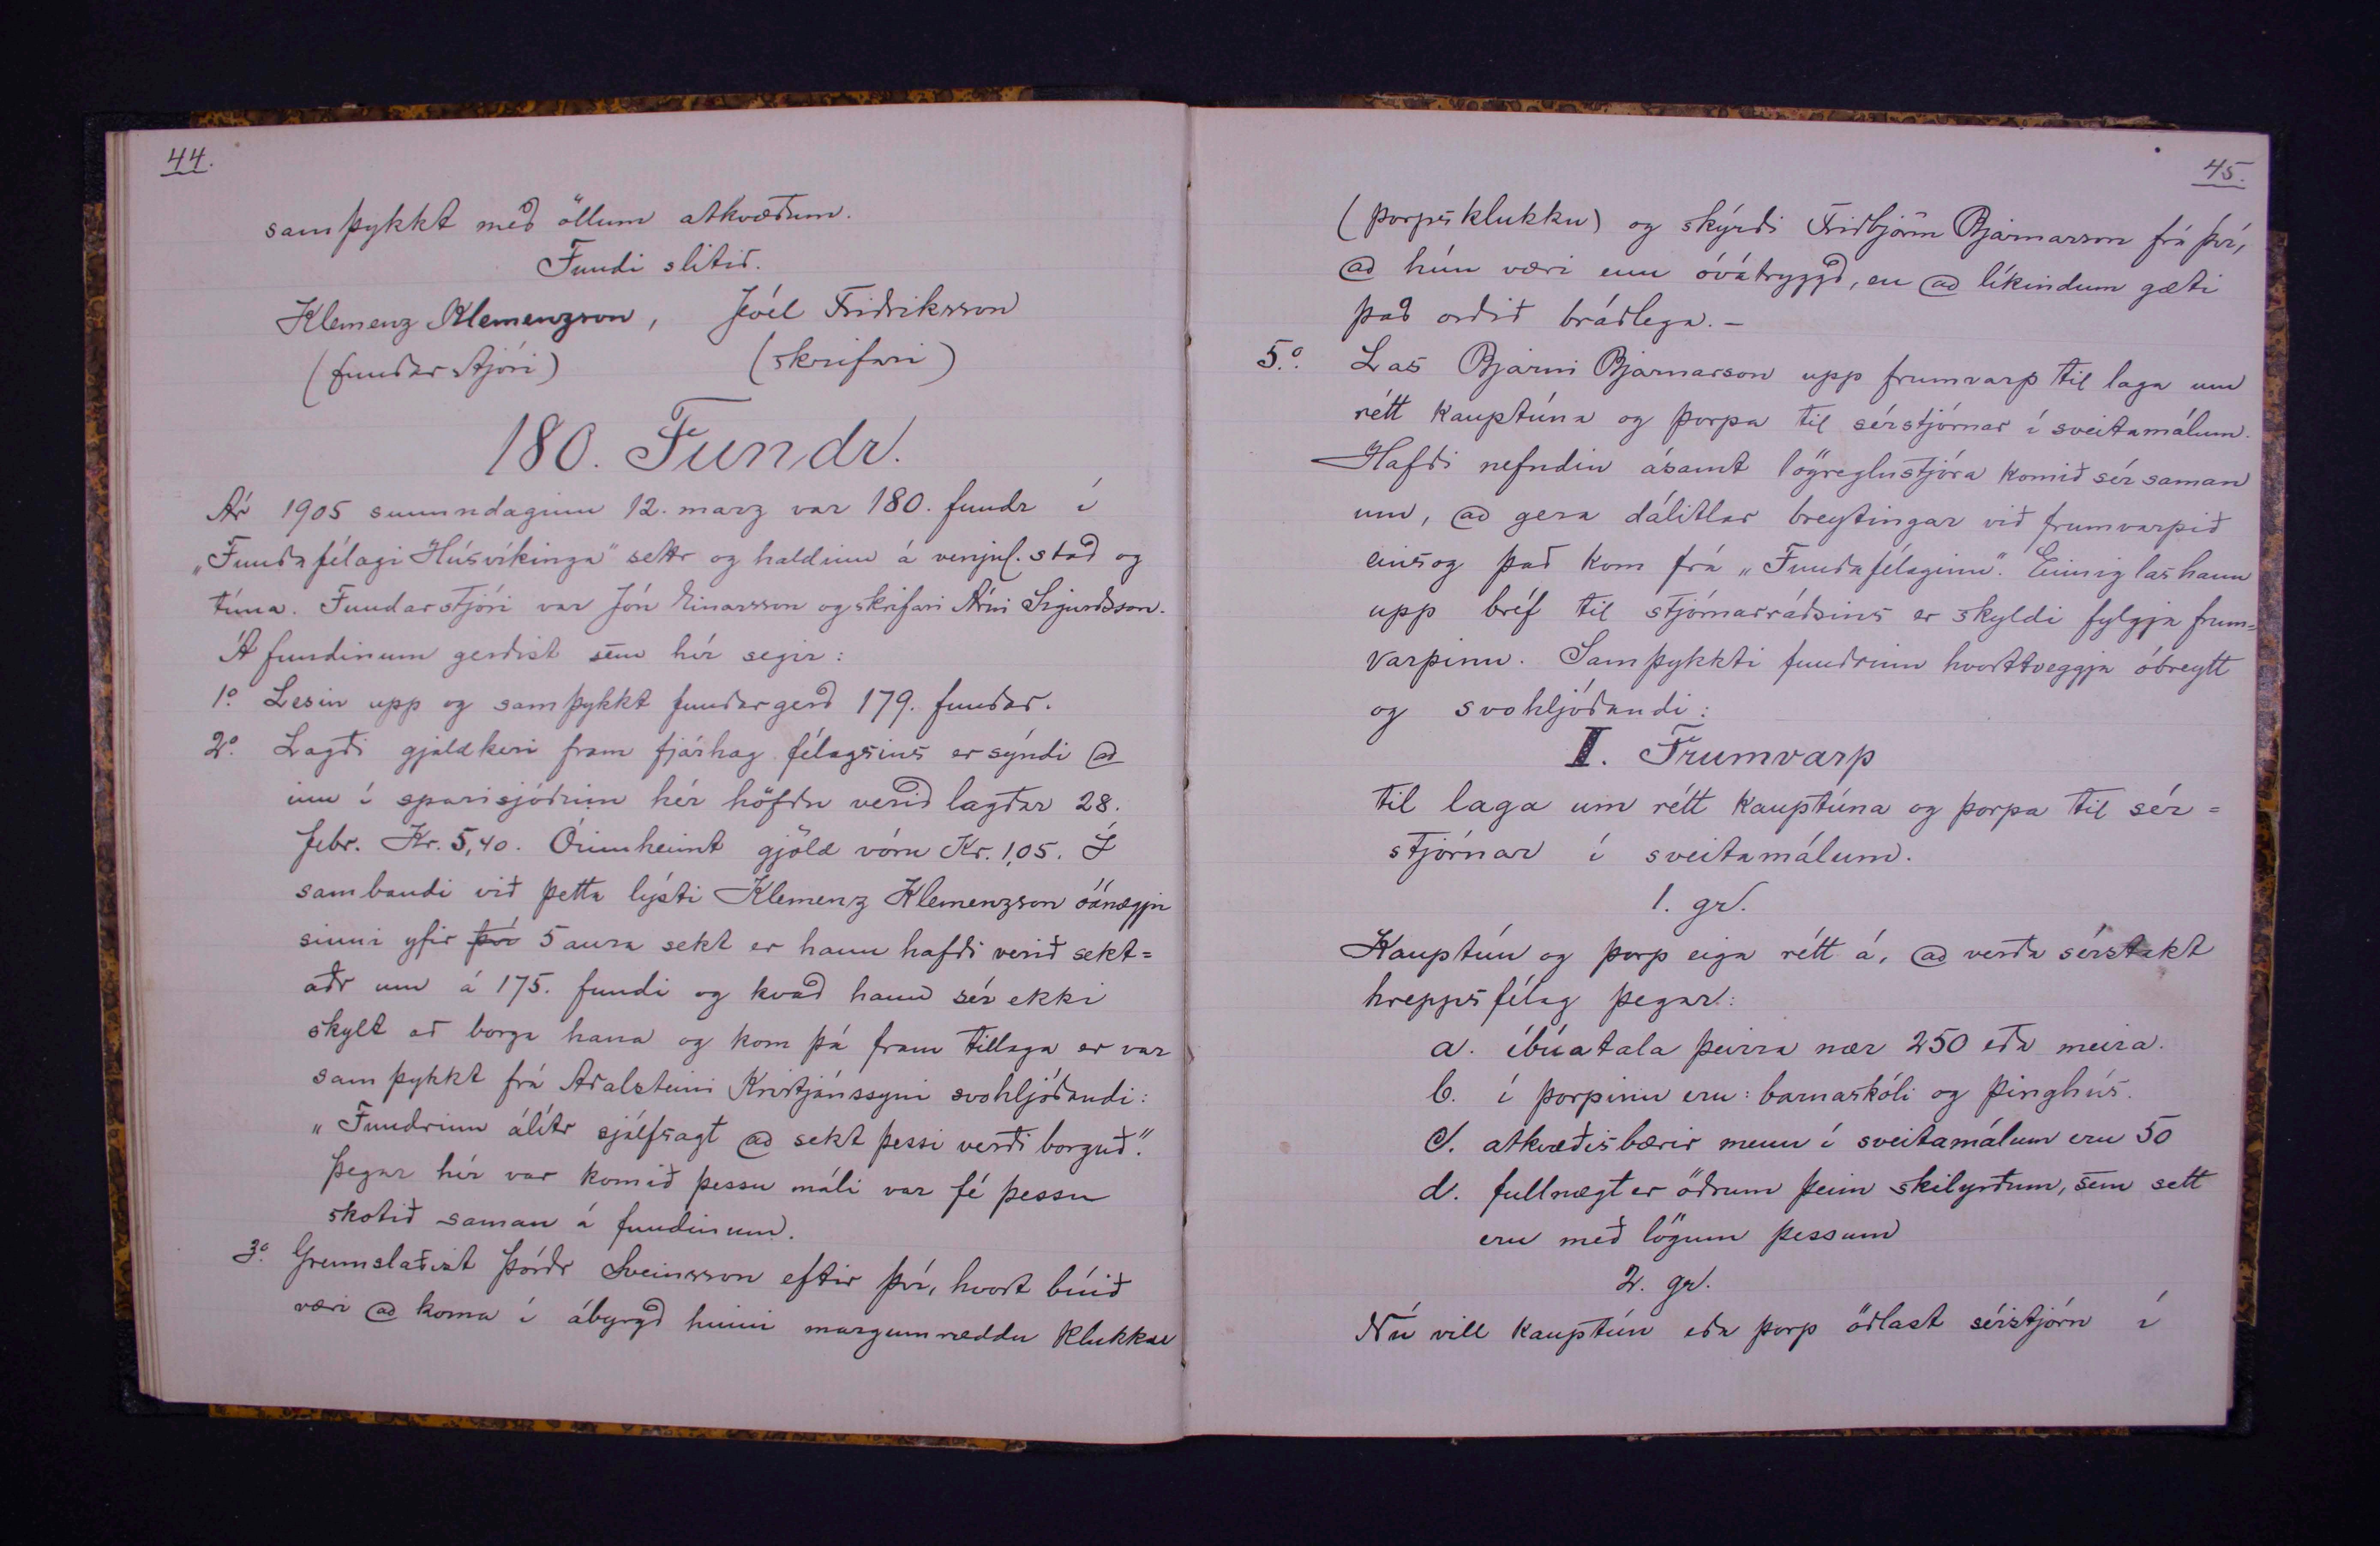 44.
samþykkt með öllum atkvæðum.
Fundi slitið.
Klemenz Klemenzson, Jóel Friðriksson
(fundarstjóri) (skrifari)
180. Fundr.
Ár 1905 sunnudaginn 12. marz var 180. fundr í
„Fundafélagi Húsvíkinga" settr og haldinn á venjul. stað og
tíma. Fundarstjóri var Jón Einarsson og skrifari Árni Sigurðsson.
Á fundinum gerðist sem hér segir:
1.º Lesin upp og samþykkt fundargerð 179. fundar.
2.º Lagði gjaldkeri fram fjárhag félagsins er sýndi @
inn í sparisjóðinn hér höfðu verið lagðar 28.
febr. Kr. 5,40. Óinnheimt gjöld vóru Kr. 1,05. Í
sambandi við þetta lýsti Klemenz Klemenzson óánægju
sinni yfir því 5 aura sekt er hann hafði verið sekt=
aðr um á 175. fundi og kvað hann sér ekki
skylt að borga hana og kom þá fram tillaga er var
samþykkt frá Aðalsteini Kristjánssyni svohljóðandi:
„Fundrinn álítr sjálfsagt @ sekt þessi verði borguð."
Þegar hér var komið þessu máli var fé þessu
skotið saman á fundinum.
3.º Grennslaðist Þórðr Sveinsson eftir því, hvort búið
væri @ koma í ábyrgð hinni margumræddu klukku
45.
(þorpsklukku) og skýrði Friðbjörn Bjarnarson frá því,
@ hún væri enn óvátryggð, en @ líkindum gæti
það orðið bráðlega. –
5.º Las Bjarni Bjarnarson upp frumvarp til laga um
rétt kauptúna og þorpa til sérstjórnar í sveitamálum.
Hafði nefndin ásamt lögreglustjóra komið sér saman
um, @ gera dálitlar breytingar við frumvarpið
einsog það kom frá „Fundafélaginu". Einnig las hann
upp bréf til stjórnarráðsins er skyldi fylgja frum=
varpinu. Samþykkti fundrinn hvorttveggja óbreytt
og svohljóðandi:
I. Frumvarp
til laga um rétt kauptúna og þorpa til sér=
stjórnar í sveitamálum.
1. gr.
Kauptún og þorp eiga rétt á, @ verða sérstakt
hreppsfélag þegar:
a. íbúatala þeirra nær 250 eða meira.
b. í þorpinu eru: barnaskóli og þinghús.
c. atkvæðisbærir menn í sveitamálum eru 50
d. fullnægt er öðrum þeim skilyrðum, sem sett
eru með lögum þessum
2. gr.
Nú vill kauptún eða þorp öðlast sérstjórn í